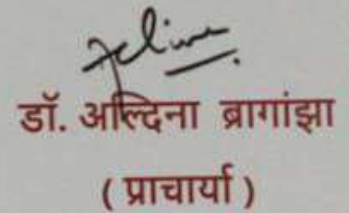 डॉ. अल्दिना ब्रागांझा
( प्राचार्या )